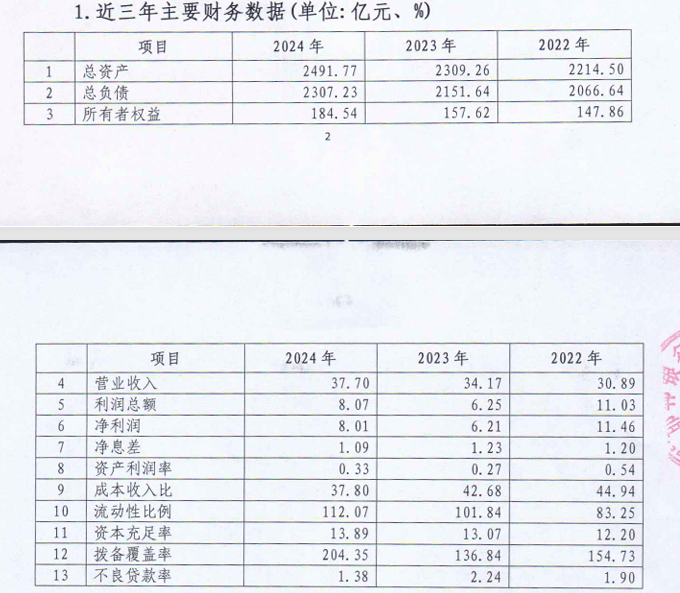 1.近三年主要财务数据(单位:亿元、%)
项目 2024年 2023年 2022年
1 总资产 2491.77 2309.26 2214.50
2 总负债 2307.23 2151.64 2066.64
3 所有者权益 184.54 157.62 147.86
2
项目 2024年 2023年 2022年
4 营业收入 37.70 34.17 30.89
5 利润总额 8.07 6.25 11.03
6 净利润 8.01 6.21 11.46
7 净息差 1.09 1.23 1.20
8 资产利润率 0.33 0.27 0.54
9 成本收入比 37.80 42.68 44.94
10 流动性比例 112.07 101.84 83.25
11 资本充足率 13.89 13.07 12.20
12 拨备覆盖率 204.35 136.84 154.73
13 不良贷款率 1.38 2.24 1.90